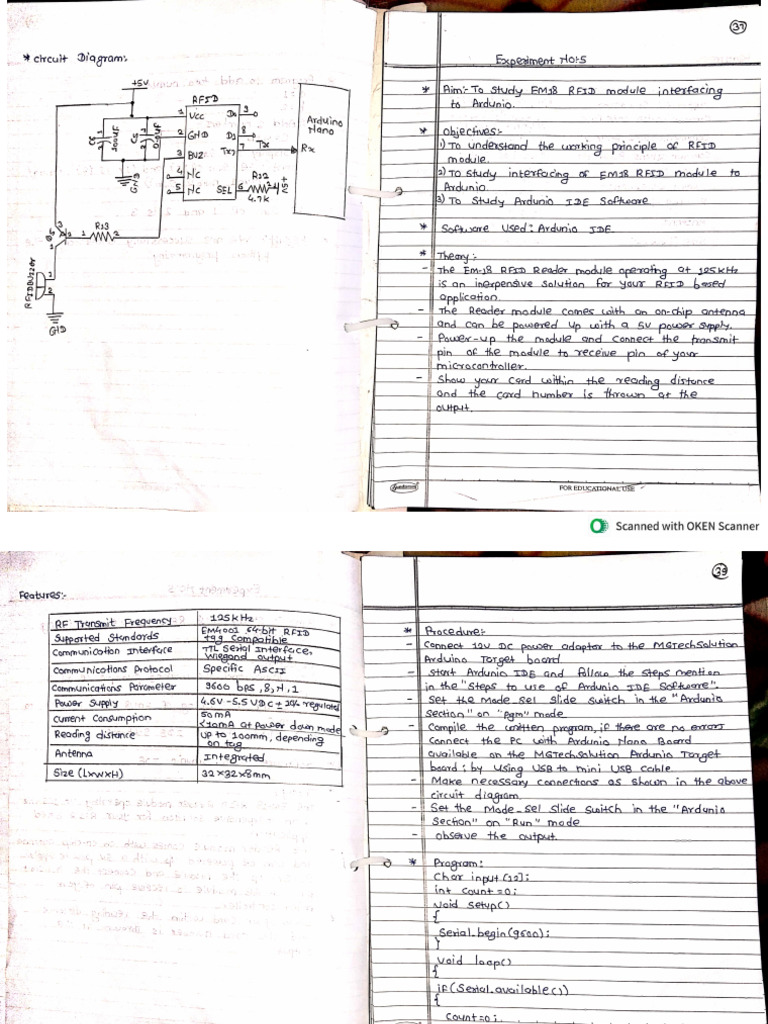 * Circuit Diagram:-
+5V
RFID
1 Vcc
D0 9
2 GND
D1 8
3 BUZ
Tx 7
Tx
4 NC
5 NC
SEL 6
R12
4.7K
+5V
Arduino
Nano
Rx
GND
R13
1
2
RFIDBUZZER
1
2
GND
37
Experiment No:5
* Aim:- To Study EM18 RFID module interfacing
to Ardunio.
* Objectives:-
1) To understand the working principle of RFID
module.
2) To study interfacing of EM18 RFID module to
Ardunio.
3) To Study Ardunio IDE Software
* Software Used: Ardunio IDE
* Theory:-
- The EM-18 RFID Reader module operating at 125kHz
is an inexpensive solution for your RFID based
application.
- The Reader module comes with an on-chip antenna
and can be powered up with a 5V power supply.
- Power-up the module and connect the transmit
pin of the module to receive pin of your
microcontroller.
- Show your card within the reading distance
and the card number is thrown at the
output.
FOR EDUCATIONAL USE
Scanned with OKEN Scanner
39
Features:-
RF Transmit Frequency 125kHz
Supported Standards EM4001 64-bit RFID
tag compatible
Communication Interface TTL Serial Interface,
Wiegand output
Communications Protocol Specific ASCII
Communications Parameter 9600 bps, 8, N, 1
Power Supply 4.6V-5.5VDC ± 10% regulated
Current Consumption 50mA
<10mA at power down mode
Reading distance Up to 100mm, depending
on tag
Antenna Integrated
Size (LxWxH) 32x32x8mm
* Procedure:-
- Connect 12V DC power adaptor to the MGTechSolution
Arduino Target board
- Start Ardunio IDE and follow the steps mention
in the "Steps to use of Ardunio IDE Software".
- Set the Mode_Sel Slide switch in the "Ardunio
Section" on "Pgm" mode
- Compile the written program, if there are no errors
connect the PC with Ardunio Nano Board
available on the MGTechsolution Ardunio Target
board; by Using USB to mini USB Cable.
- Make necessary connections as shown in the above
circuit diagram
- Set the Mode_Sel Slide Switch in the "Ardunio
Section" on "Run" mode
- observe the output.
* Program:
Char input[12];
int count=0;
Void setup()
{
Serial.begin(9600);
}
Void loop()
{
if(Serial.available())
{
count=0;